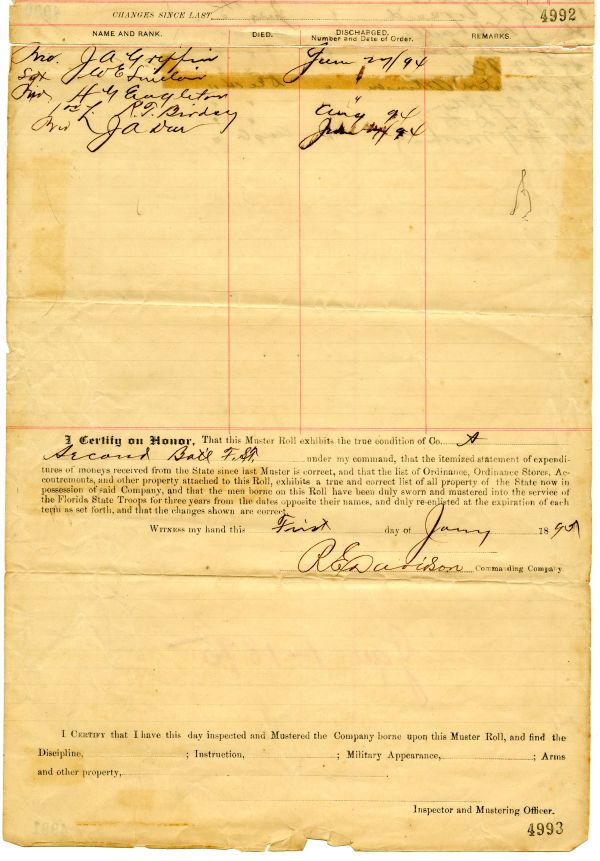 CHANGES SINCE LAST 4992
NAME AND RANK. DIED. DISCHARGED. Number and Date of Order. REMARKS.
J A Griffin June 27/94
Sgt W E
H G Eagleton
R. F. Birdsey Aug 94
J A 94
I Certify on Honor, That this Muster Roll exhibits the true condition of Co. A
Second Batt F.S.T. under my command, that the itemized statement of expendi-
tures of moneys received from the State since last Muster is correct, and that the list of Ordinance, Ordinance Stores, Ac-
coutrements, and other property attached to this Roll, exhibits a true and correct list of all property of the State now in
possession of said Company, and that the men borne on this Roll have been duly sworn and mustered into the service of
the Florida State Troops for three years from the dates opposite their names, and duly re-enlisted at the expiration of each
term as set forth, and that the changes shown are correct.
WITNESS my hand this First day of Jany 1895
R E Davidson Commanding Company.
I CERTIFY that I have this day inspected and Mustered the Company borne upon this Muster Roll, and find the
Discipline, ; Instruction, ; Military Appearance, ; Arms
and other property,
Inspector and Mustering Officer.
4993